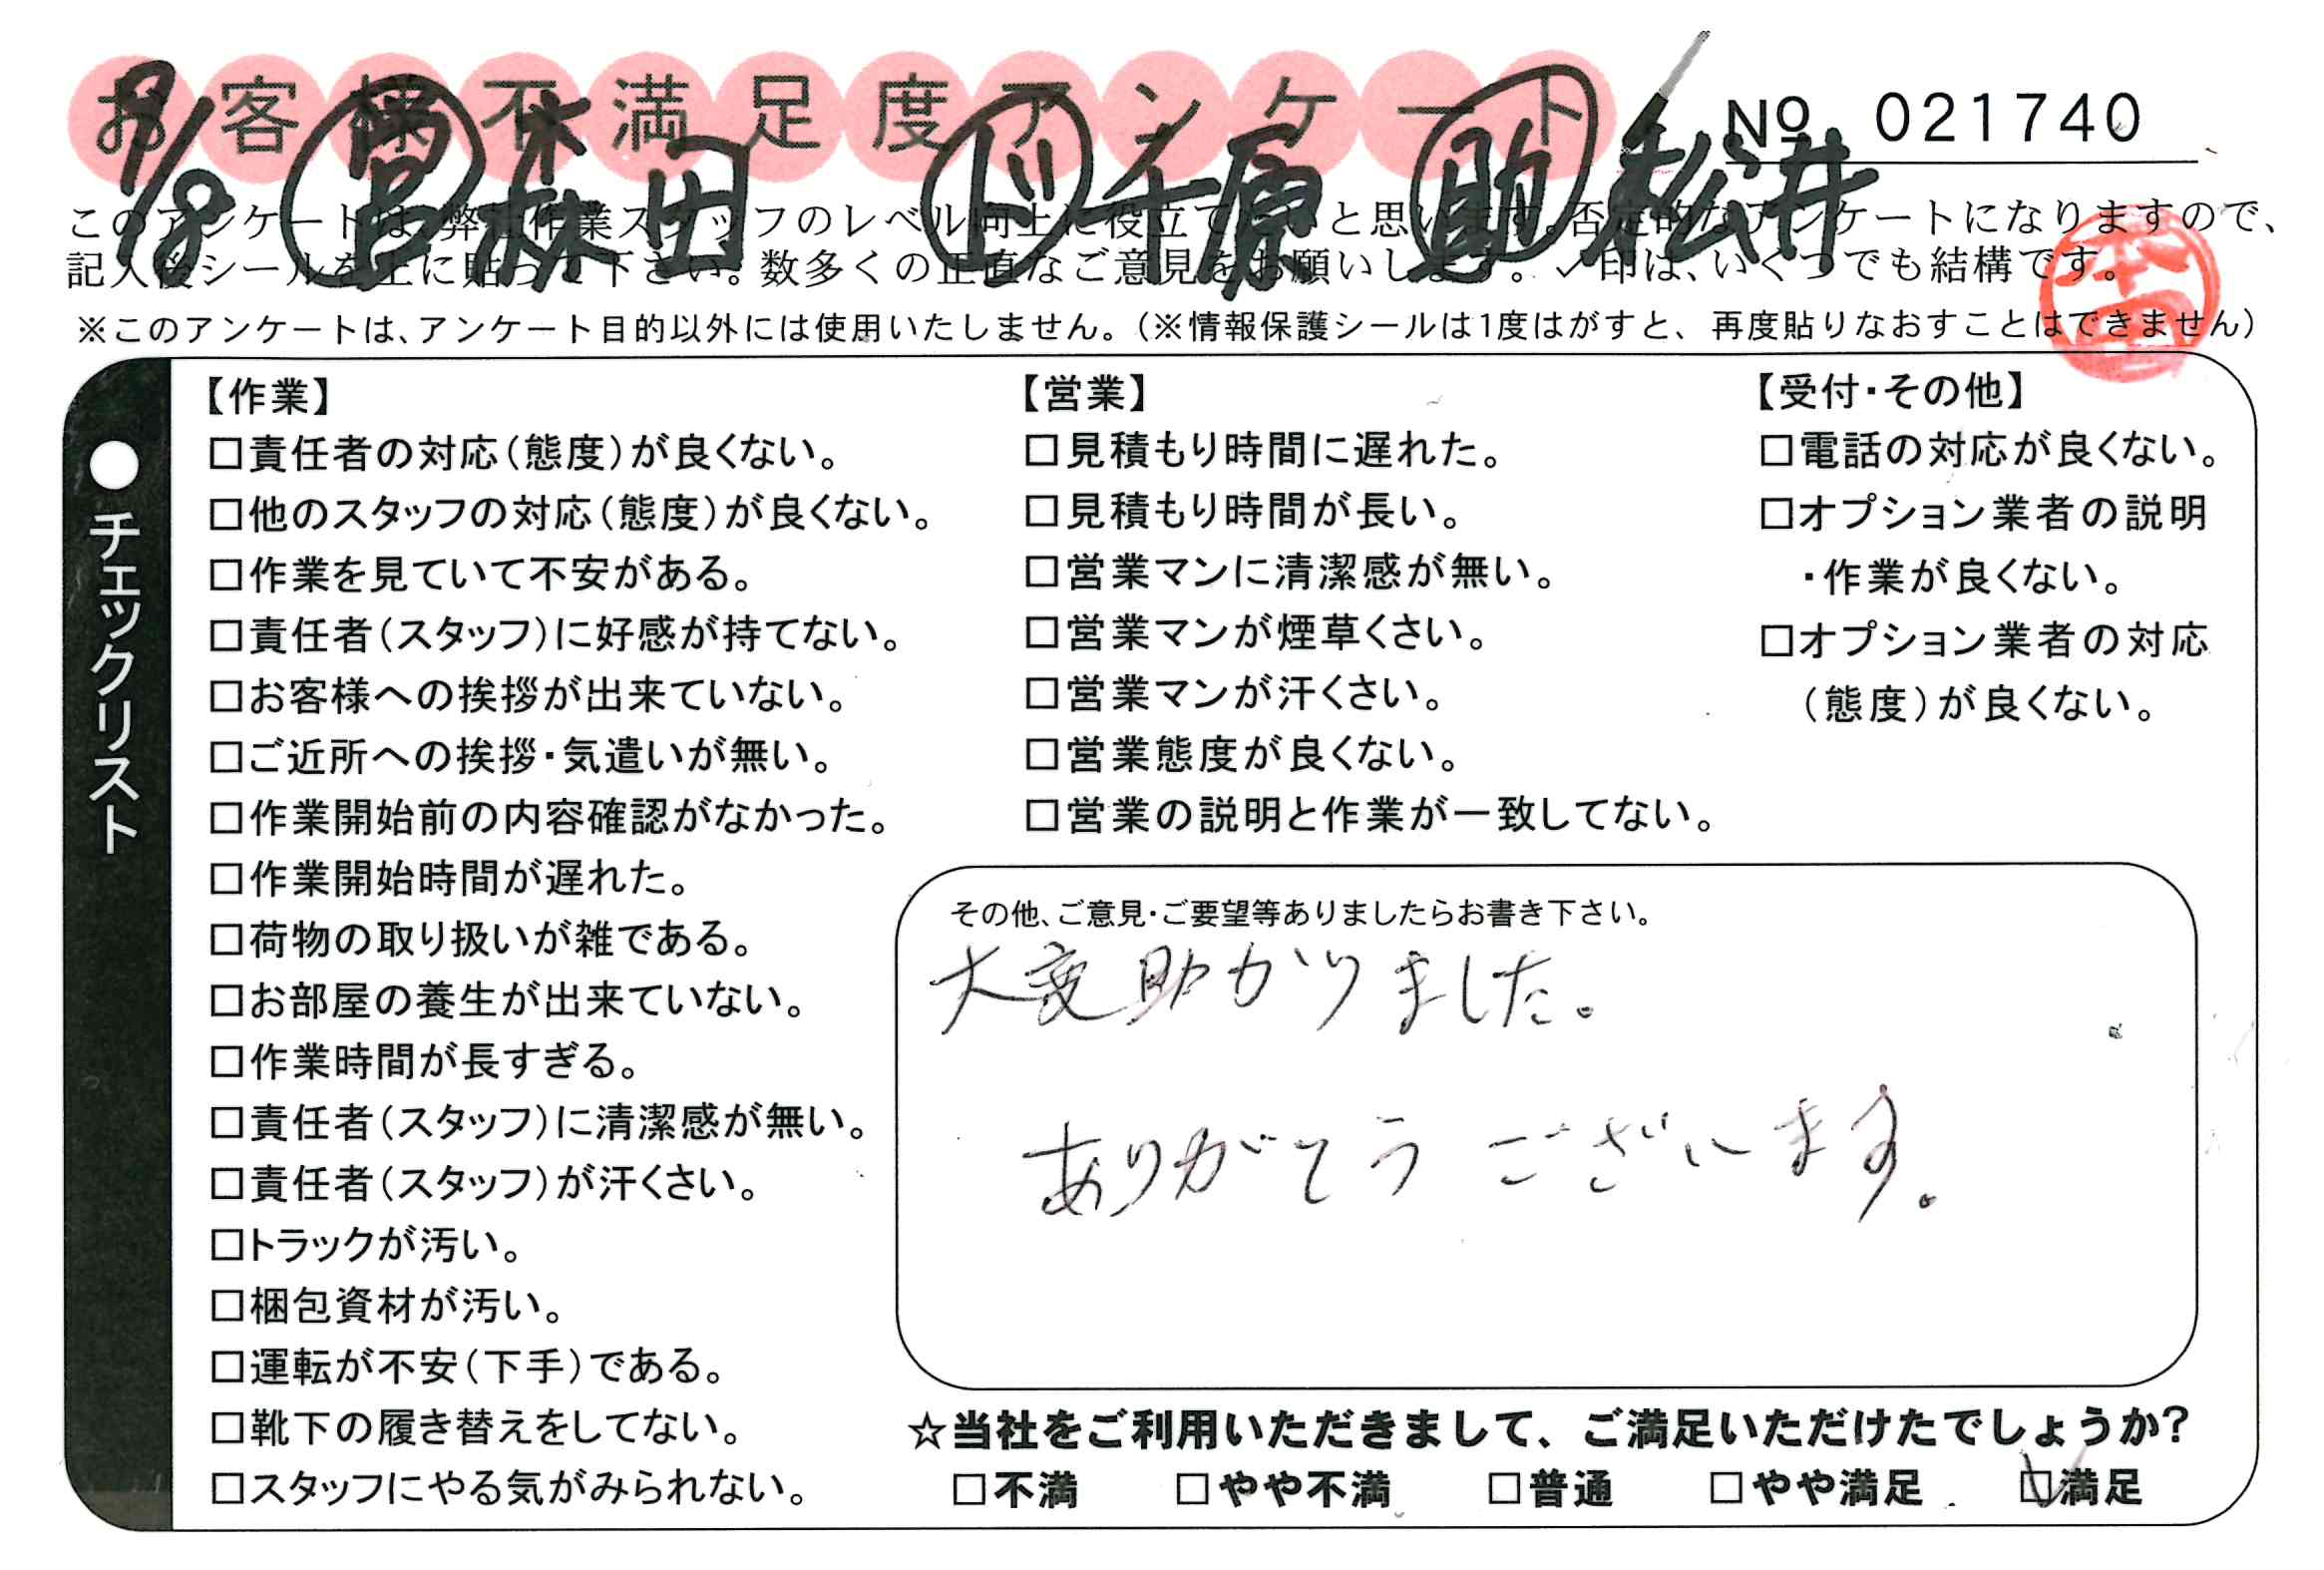 お客様不満足度アンケート
No 021740
9/8 営 森田 ド 千原 助 松井
このアンケートは、弊社作業スタッフのレベル向上に役立てたいと思います。否定的なアンケートになりますので、
記入後シールを上に貼って下さい。数多くの正直なご意見をお願いします。✓印は、いくつでも結構です。
※このアンケートは、アンケート目的以外には使用いたしません。(※情報保護シールは1度はがすと、再度貼りなおすことはできません)
●チェックリスト
【作業】
□責任者の対応(態度)が良くない。
□他のスタッフの対応(態度)が良くない。
□作業を見ていて不安がある。
□責任者(スタッフ)に好感が持てない。
□お客様への挨拶が出来ていない。
□ご近所への挨拶・気遣いが無い。
□作業開始前の内容確認がなかった。
□作業開始時間が遅れた。
□荷物の取り扱いが雑である。
□お部屋の養生が出来ていない。
□作業時間が長すぎる。
□責任者(スタッフ)に清潔感が無い。
□責任者(スタッフ)が汗くさい。
□トラックが汚い。
□梱包資材が汚い。
□運転が不安(下手)である。
□靴下の履き替えをしてない。
□スタッフにやる気がみられない。
【営業】
□見積もり時間に遅れた。
□見積もり時間が長い。
□営業マンに清潔感が無い。
□営業マンが煙草くさい。
□営業マンが汗くさい。
□営業態度が良くない。
□営業の説明と作業が一致してない。
【受付・その他】
□電話の対応が良くない。
□オプション業者の説明
・作業が良くない。
□オプション業者の対応
(態度)が良くない。
その他、ご意見・ご要望等ありましたらお書き下さい。
大変助かりました。
ありがとうございます。
☆当社をご利用いただきまして、ご満足いただけたでしょうか?
□不満 □やや不満 □普通 □やや満足 ☑満足